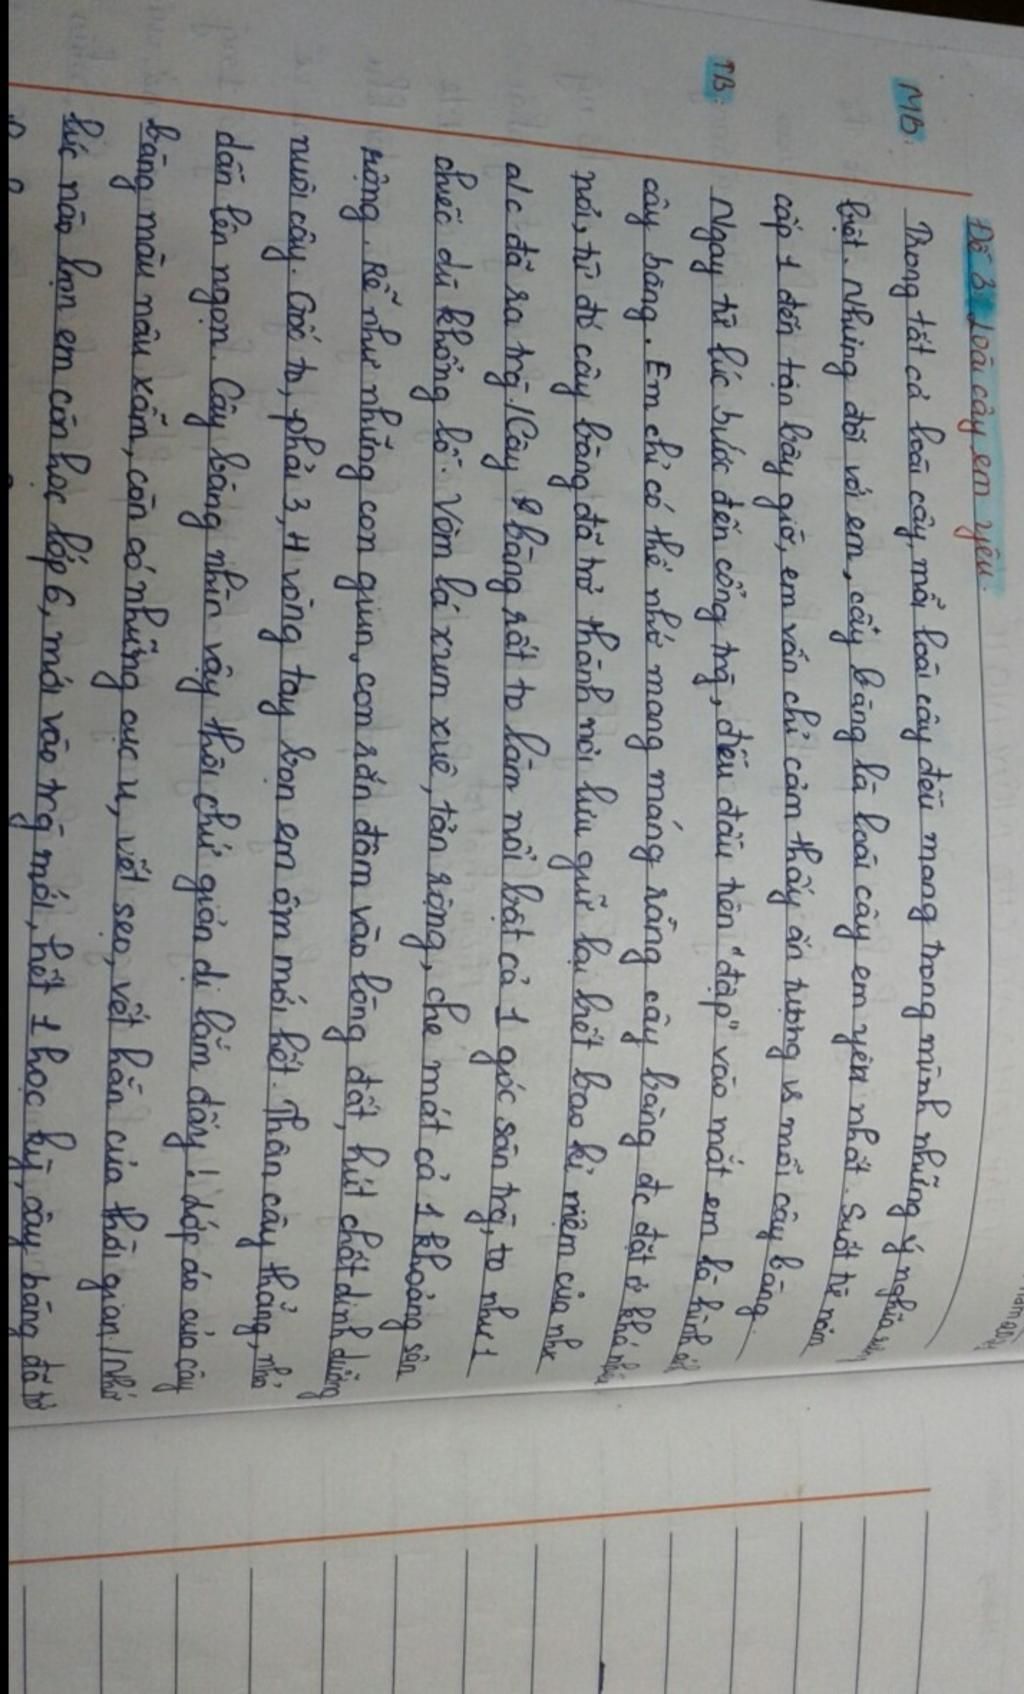 Đề 3: Loài cây em yêu.
MB: Trong tất cả loài cây, mỗi loài cây đều mang trong mình những ý nghĩa
biệt. Nhưng đối với em, cây bàng là loài cây em yêu nhất. Suốt từ năm
cấp 1 đến tận bây giờ, em vẫn chỉ cảm thấy ấn tượng vs mỗi cây bàng.
TB: Ngay từ lúc bước đến cổng trg, điều đầu tiên "đập" vào mắt em là hình ảh
cây bàng. Em chỉ có thể nhớ mang máng rằng cây bàng đc đặt ở khá
nơi, từ đó cây bàng đã trở thành nơi lưu giữ lại biết bao kỉ niệm của nhx
a/c đã ra trg. / Cây bàng rất to làm nổi bật cả 1 góc sân trg, to như 1
chiếc dù khổng lồ. Vòm lá xum xuê, tán rộng, che mát cả 1 khoảng sân
rộng. Rễ như những con giun, con rắn đâm vào lòng đất, hút chất dinh dưỡng
nuôi cây. Gốc to, phải 3, 4 vòng tay bọn em ôm mới hết. Thân cây thẳng, nhỏ
dần lên ngọn. Cây bàng nhìn vậy thôi chứ giản dị lắm đấy! Lớp áo của cây
bàng màu nâu xỉn, còn có những cục u, vết sẹo, vết hằn của thời gian. / Nhớ
lúc nào bọn em còn học lớp 6, mới vào trg mới, hết 1 học kỳ, cây bàng đã